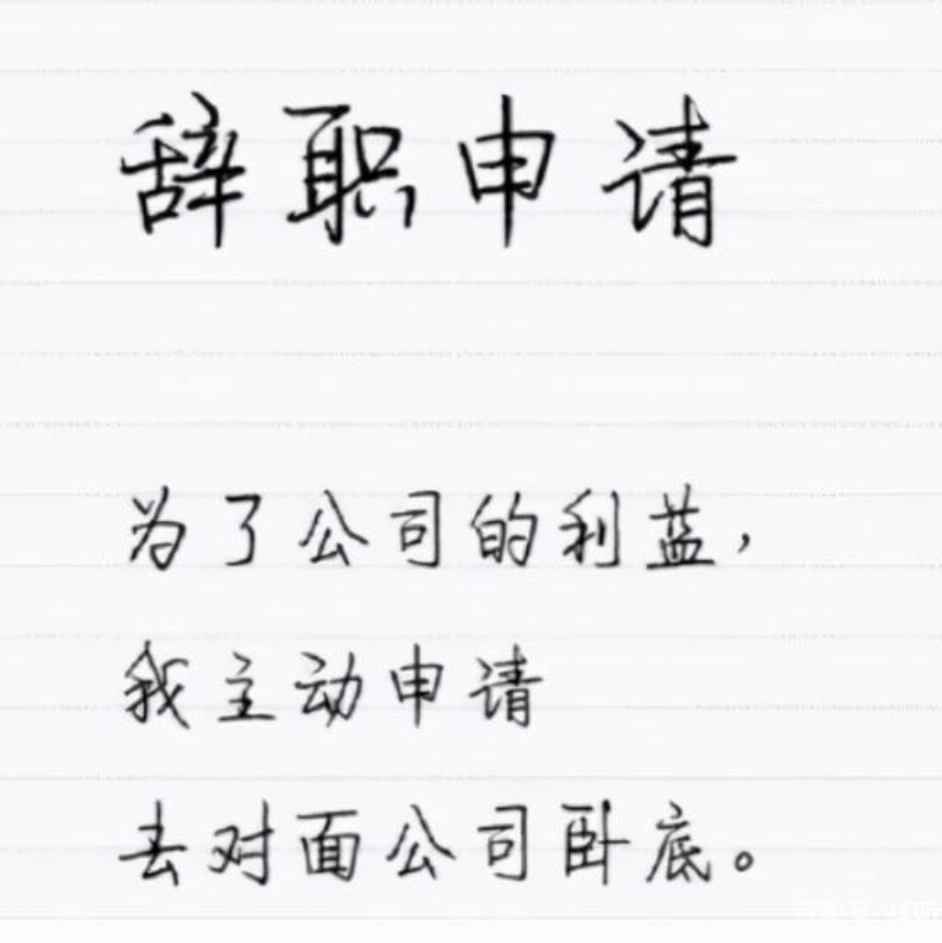 辞职申请
为了公司的利益，
我主动申请
去对面公司卧底。